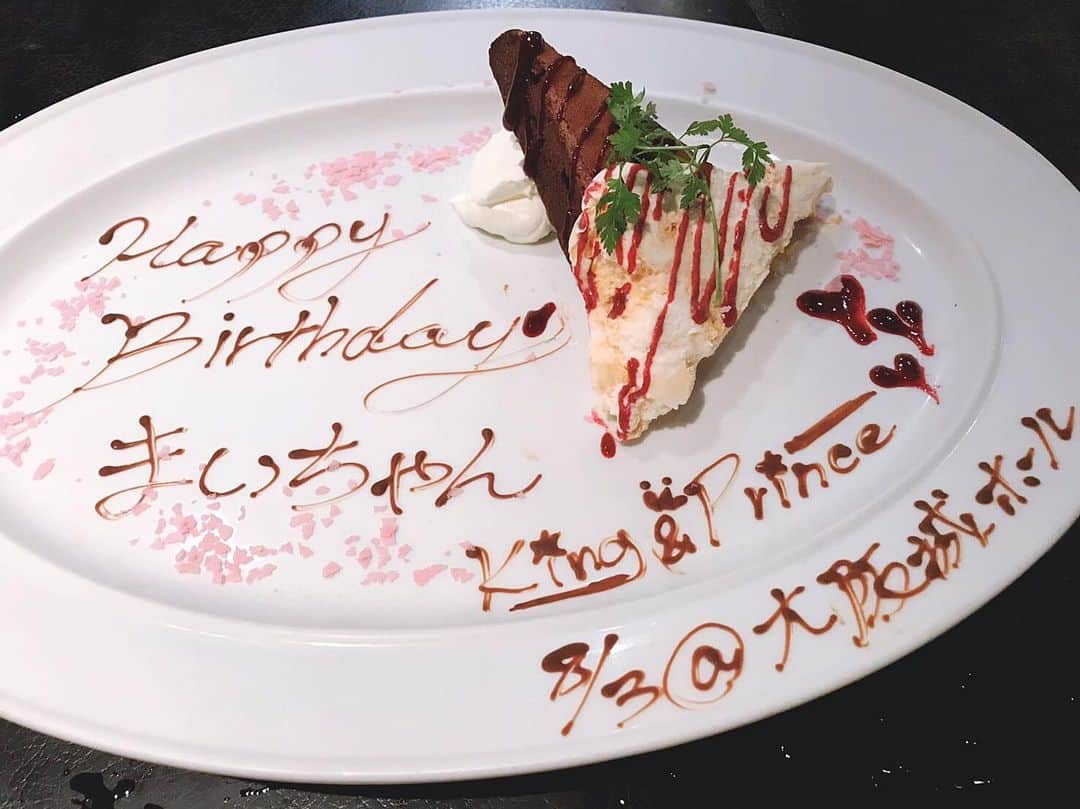 Happy
Birthday
まいちゃん
King & Prince
8/3@大阪城ホール